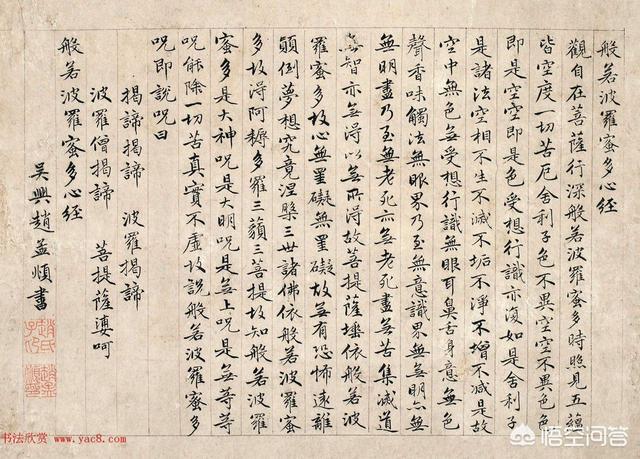 般若波羅蜜多心経
觀自在菩薩行深般若波羅蜜多時照見五蘊
皆空度一切苦厄舍利子色不異空空不異色色
即是空空即是色受想行識亦復如是舍利子
是諸法空相不生不滅不垢不淨不增不減是故
空中無色無受想行識無眼耳鼻舌身意無色
聲香味觸法無眼界乃至無意識界無無明亦無
無明盡乃至無老死亦無老死盡無苦集滅道
無智亦無得以無所得故菩提薩埵依般若波
羅蜜多故心無罣礙無罣礙故無有恐怖遠離
顛倒夢想究竟涅槃三世諸佛依般若波羅蜜
多故得阿耨多羅三藐三菩提故知般若波羅
蜜多是大神呪是大明呪是無上呪是無等等
呪能除一切苦真實不虛故說般若波羅蜜多
呪即說呪曰
揭諦揭諦 波羅揭諦
波羅僧揭諦 菩提薩婆呵
般若波羅蜜多心経
吳興趙孟頫書
趙氏子昂
书法欣赏 www.yac8.com
悟空问答